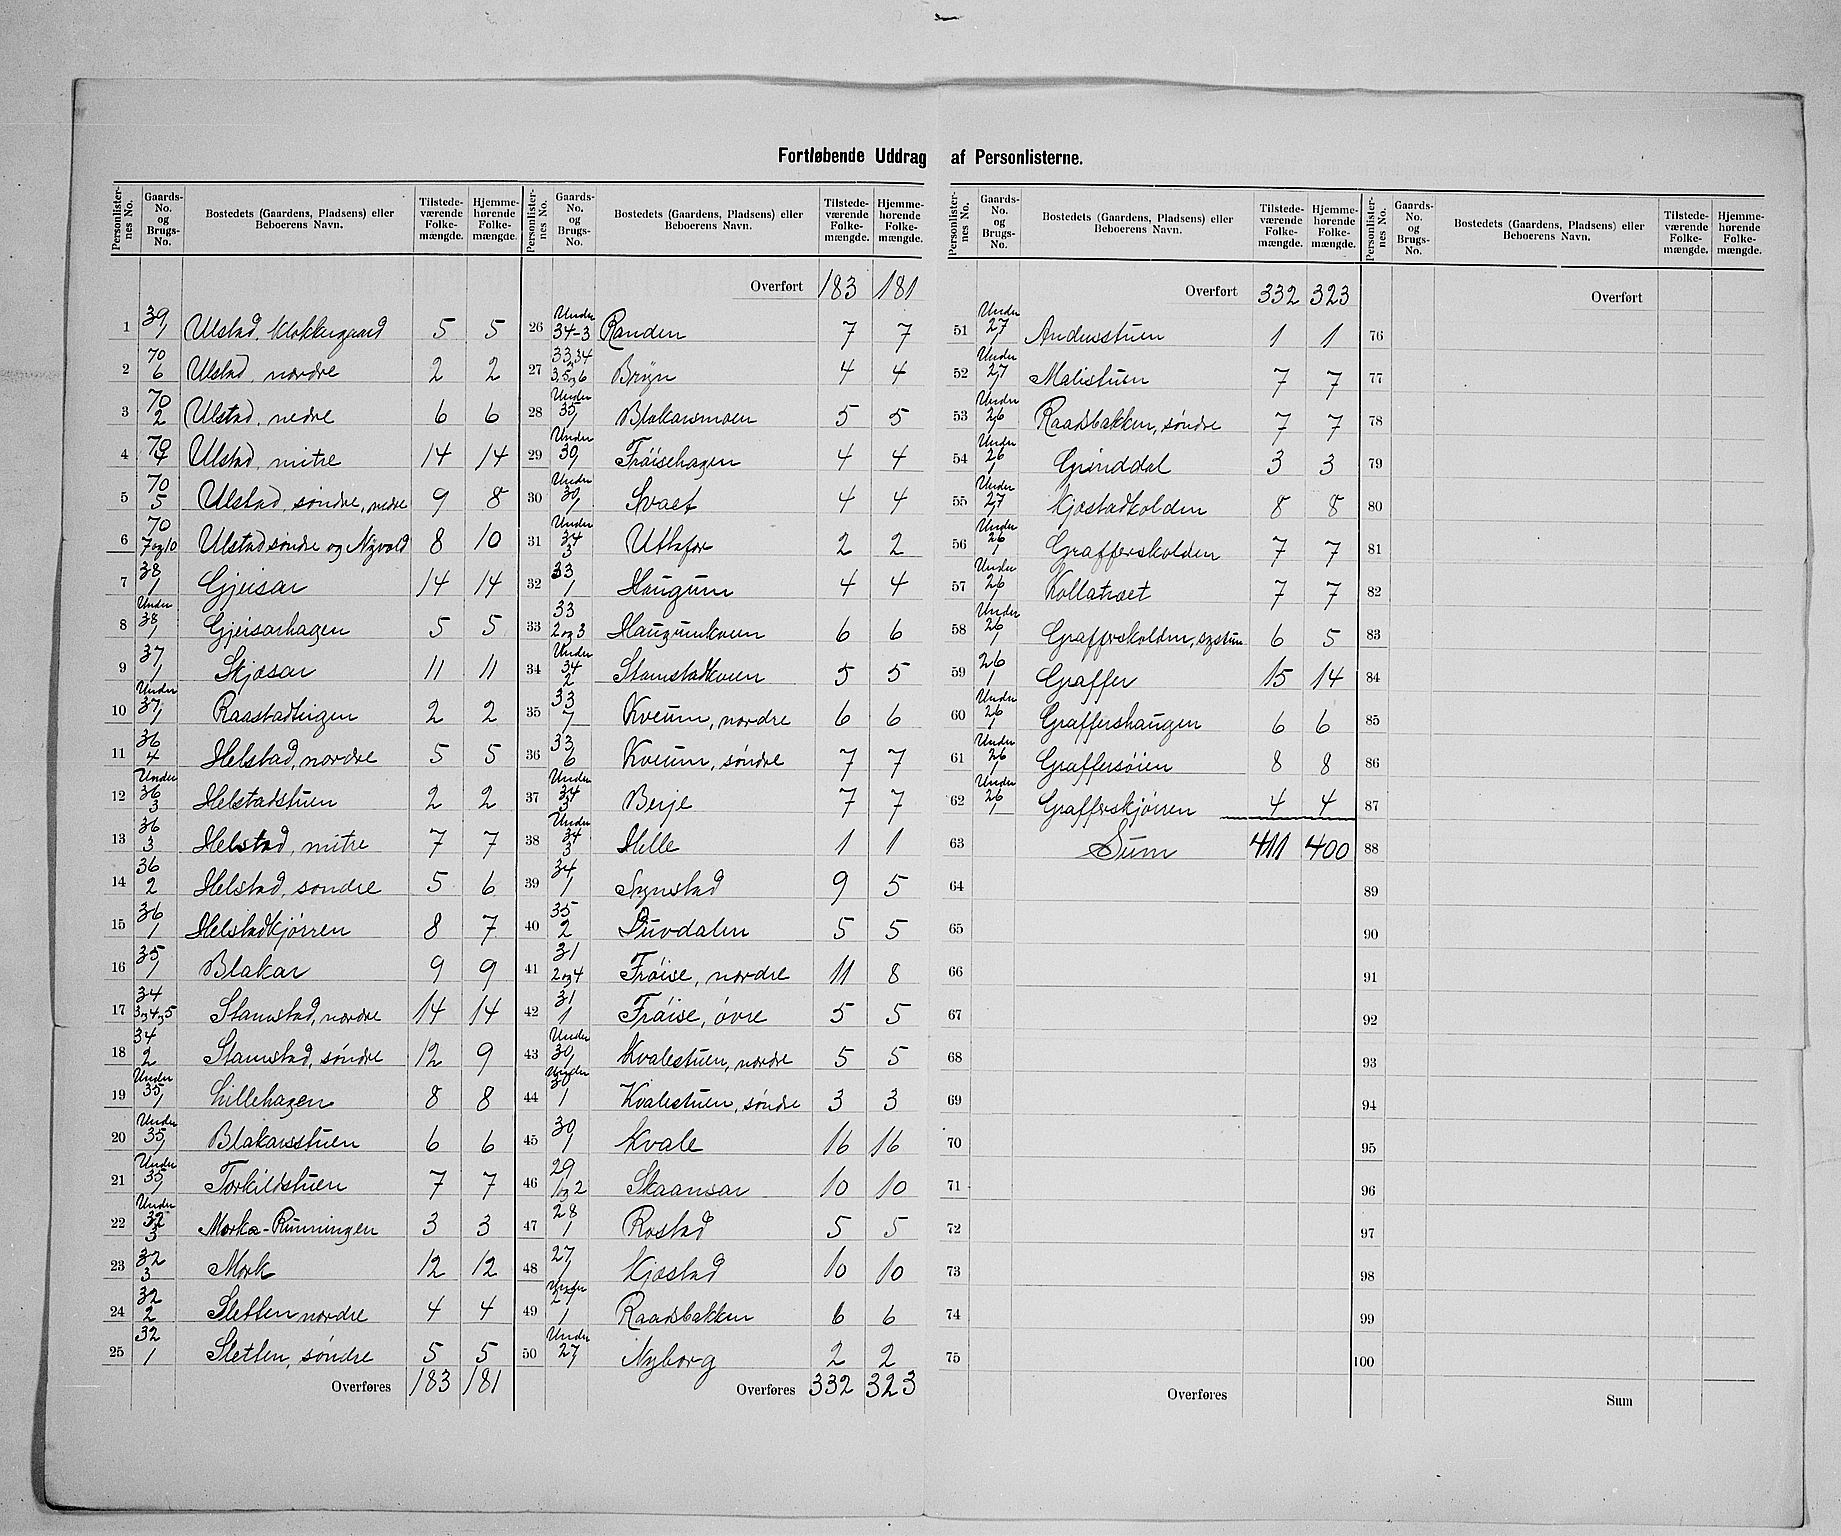 Fortløbende Uddrag af Personlisterne.
Personlisternes No. Gaards-No. og Brugs-No. Bostedets (Gaardens, Pladsens) eller Beboerens Navn. Tilstedeværende Folkemængde. Hjemmehørende Folkemængde.
1 39/1 Ulstad, Klokkergaard 5 5
2 70/6 Ulstad, nordre 2 2
3 70/2 Ulstad, nedre 6 6
4 70/4 Ulstad, mitre 14 14
5 70/5 Ulstad, søndre, nedre 9 8
6 70/7 og 10 Ulstad søndre og Nyvold 8 10
7 38/1 Gjeisar 14 14
8 Under 38/1 Gjeisarhagen 5 5
9 37/1 Skjæsar 11 11
10 Under 37/1 Raastadteigen 2 2
11 36/4 Helstad, nordre 5 5
12 Under 36/3 Helstadstuen 2 2
13 36/3 Helstad, mitre 7 7
14 36/2 Helstad, søndre 5 6
15 36/1 Helstadkjørren 8 7
16 35/1 Blakar 9 9
17 34/3 og 4 og 5 Stamstad, nordre 14 14
18 34/2 Stamstad, søndre 12 9
19 Under 35/1 Lillehagen 8 8
20 Under 35/1 Blakarsstuen 6 6
21 Under 35/1 Torkildstuen 7 7
22 Under 32/3 Morke-Runningen 3 3
23 32/3 Mork 12 12
24 32/2 Sletten nordre 4 4
25 32/1 Sletten, søndre 5 5
Overføres 183 181
Personlisternes No. Gaards-No. og Brugs-No. Bostedets (Gaardens, Pladsens) eller Beboerens Navn. Tilstedeværende Folkemængde. Hjemmehørende Folkemængde.
Overført 183 181
26 Under 34-3 Randen 7 7
27 33,34 3,5og6 Bryn 4 4
28 Under 35/1 Blakarsmoen 5 5
29 Under 30/1 Frøisehagen 4 4
30 Under 30/1 Svaet 4 4
31 Under 34/3 Utlafor 2 2
32 33/1 Haugum 4 4
33 33/2 og 3 Haugumkvern 6 6
34 Under 34/2 Stamstadkvern 5 5
35 33/7 Kveum, nordre 6 6
36 33/6 Kveum, søndre 7 7
37 Under 34/3 Berje 7 7
38 Under 34/3 Helle 1 1
39 34/1 Synstad 9 5
40 35/2 Duvdalen 5 5
41 31/2og4 Frøise, nordre 11 8
42 31/1 Frøise, øvre 5 5
43 Under 30/1 Kvalestuen, nordre 5 5
44 Under 30/1 Kvalestuen, søndre 3 3
45 30/1 Kvale 16 16
46 29/1og2 Skaansar 10 10
47 28/1 Rostad 5 5
48 27/1 Kjæstad 10 10
49 Under 27/1 Raadsbakken 6 6
50 Under 27 Nyborg 2 2
Overføres 332 323
Personlisternes No. Gaards-No. og Brugs-No. Bostedets (Gaardens, Pladsens) eller Beboerens Navn. Tilstedeværende Folkemængde. Hjemmehørende Folkemængde.
Overført 332 323
51 Under 27/1 Andersstuen 1 1
52 Under 27/1 Malistuen 7 7
53 Under 26/1 Raadsbakken, søndre 7 7
54 Under 26/1 Grinddal 3 3
55 Under 27/1 Kjæstadkolden 8 8
56 Under 26/1 Grafferskolden 7 7
57 Under 26/1 Kollatræet 7 7
58 Under 26/1 Grafferskolden, systuen 6 5
59 26/1 Graffer 15 14
60 Under 26/1 Graffershaugen 6 6
61 Under 26/1 Graffersøien 8 8
62 Under 26/1 Grafferskjørren 4 4
63 Sum 411 400
64
65
66
67
68
69
70
71
72
73
74
75
Overføres
Personlisternes No. Gaards-No. og Brugs-No. Bostedets (Gaardens, Pladsens) eller Beboerens Navn. Tilstedeværende Folkemængde. Hjemmehørende Folkemængde.
Overført
76
77
78
79
80
81
82
83
84
85
86
87
88
89
90
91
92
93
94
95
96
97
98
99
100
Sum